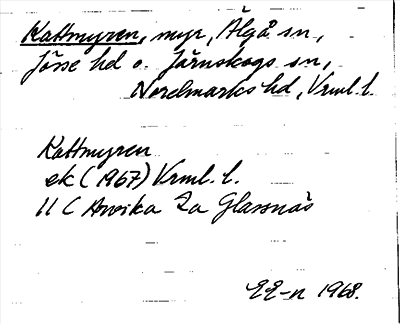 Kattmyren, myr, Älgå sn,
Jösse hd o. Järnskogs sn,
Nordmarks hd, Vrml. l.
Kattmyren
ek (1967) Vrml. l.
11 C Arvika 2a Glassnäs
EE-n 1968.